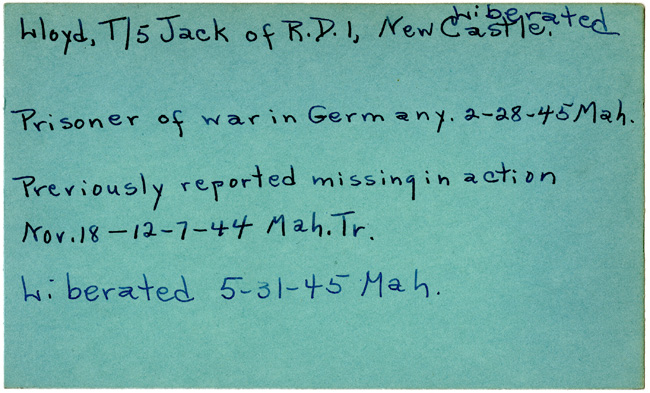 Liberated
Lloyd, T/5 Jack of R.D.1, New Castle.
Prisoner of war in Germany. 2-28-45 Mah.
Previously reported missing in action
Nov. 18 - 12-7-44 Mah. Tr.
Liberated 5-31-45 Mah.